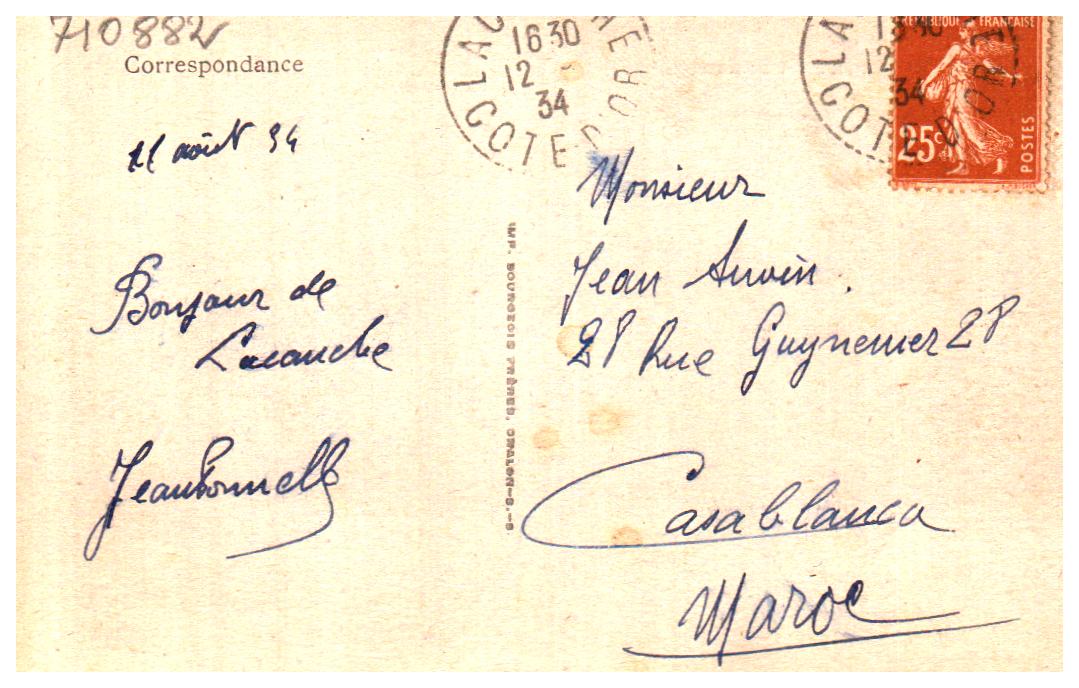 710882
Correspondance
LACA HE
16 30
12
34
COTE D'OR
LA
12
34
COTE D'OR
REPUBLIQUE FRANCAISE
25c
POSTES
11 août 34
Bonjour de
Lacanche
IMP. BOURGEOIS FRÈRES, CHALON-S.-S
Monsieur
Jean
28 Rue Guynemer 28
Casablanca
Maroc